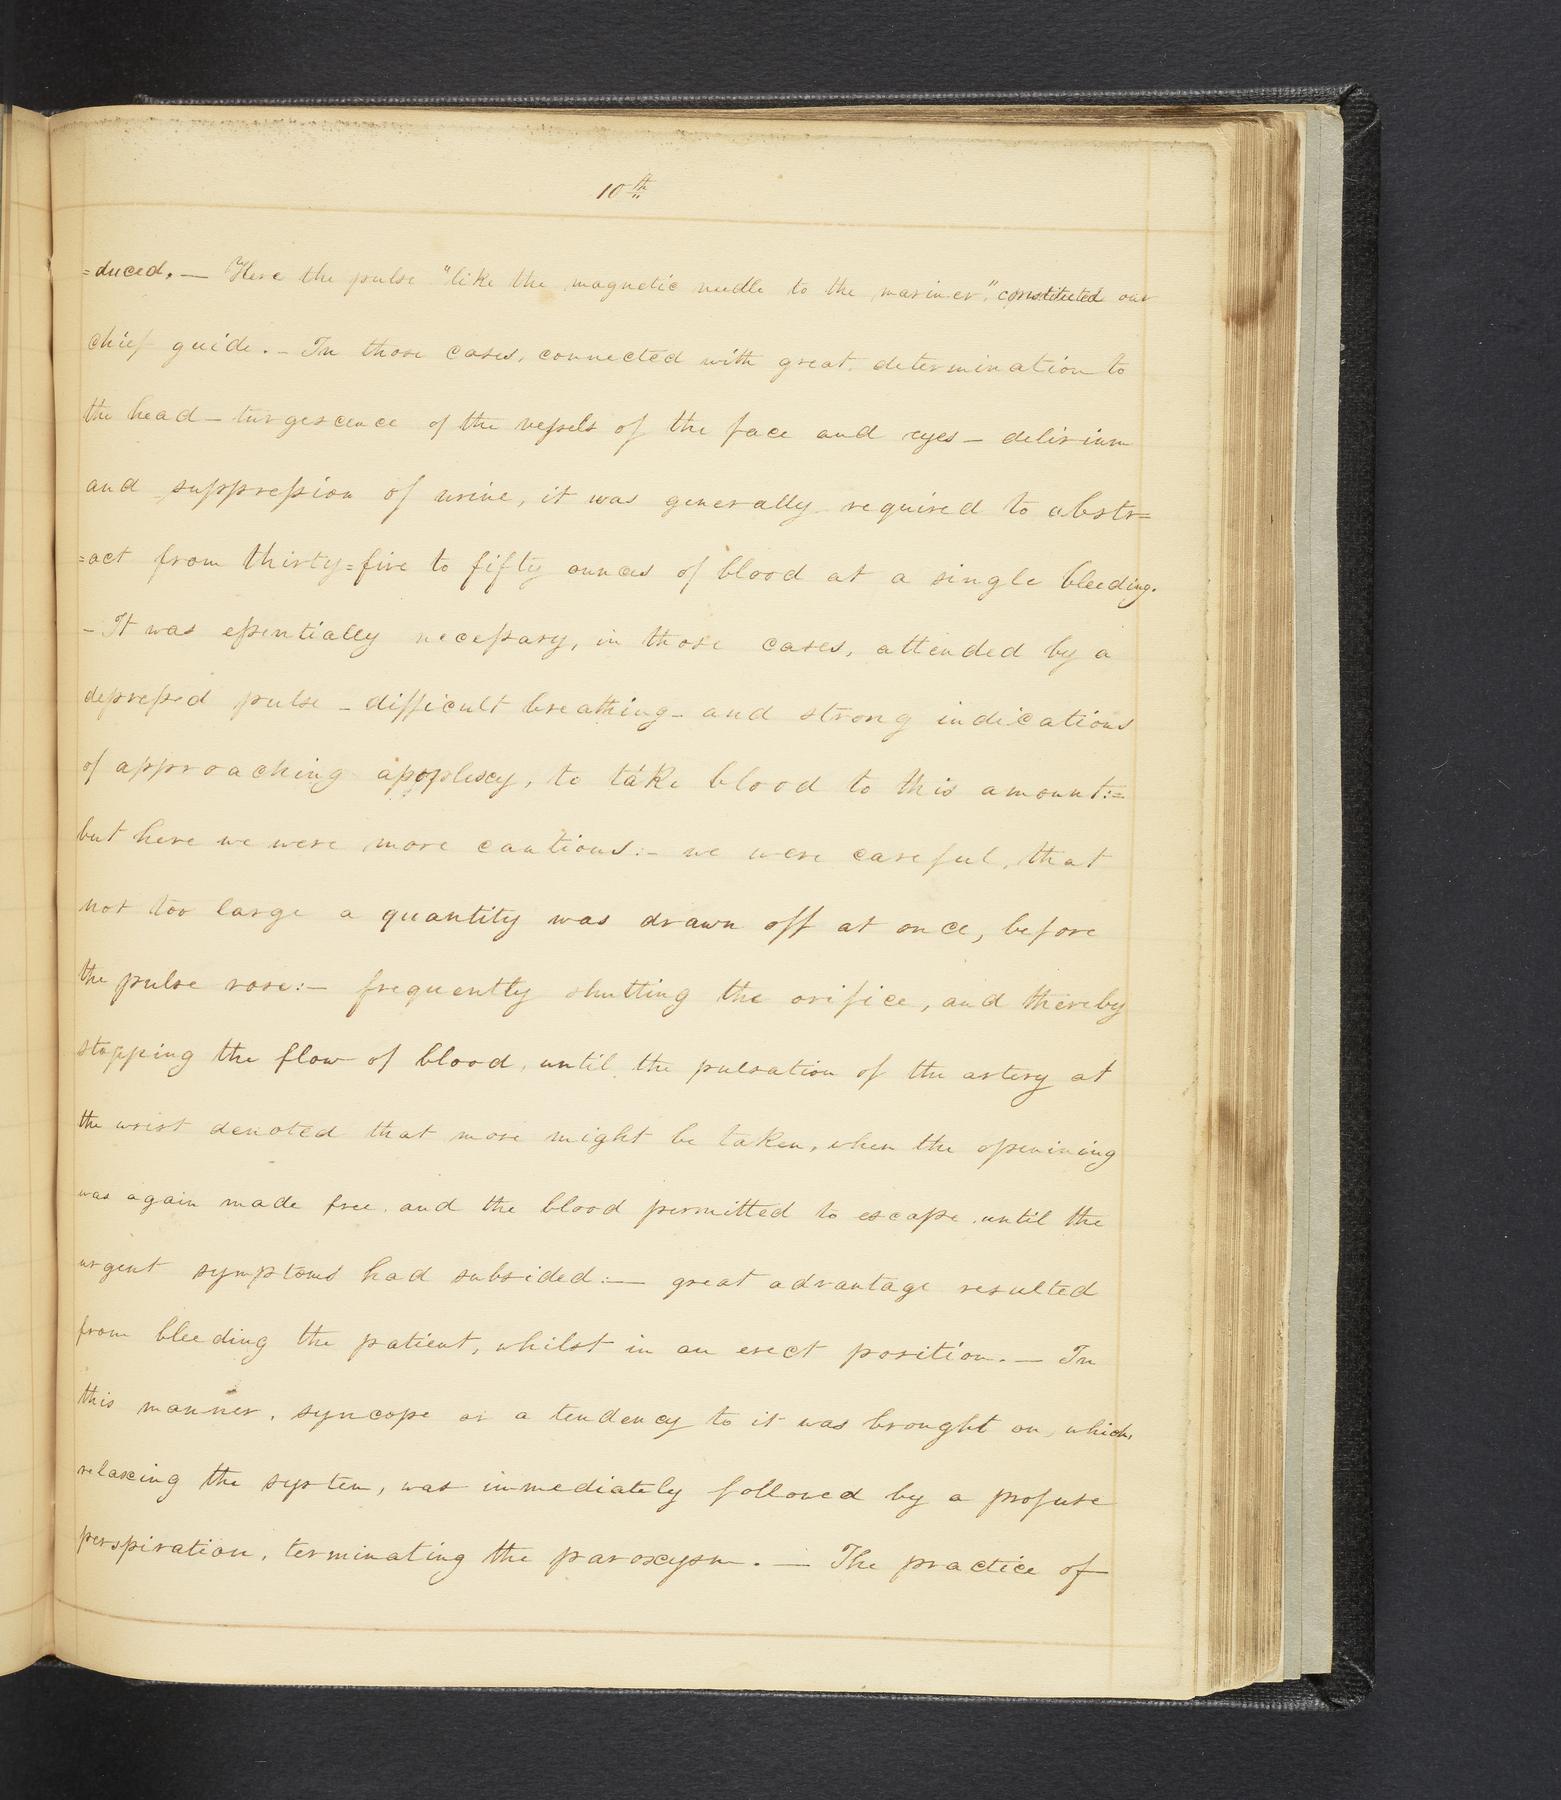 10th
=duced. — Here the pulse "like the magnetic needle to the mariner," constituted our
chief guide. — In those cases, connected with great determination to
the head — turgescence of the vessels of the face and eyes — delirium
and suppression of urine, it was generally required to abstr=
=act from thirty=five to fifty ounces of blood at a single bleeding.
— It was essentially necessary, in those cases, attended by a
depressed pulse — difficult breathing — and strong indications
of approaching apoplexy, to take blood to this amount:=
but here we were more cautious:— we were careful, that
not too large a quantity was drawn off at once, before
the pulse rose:— frequently shutting the orifice, and thereby
stopping the flow of blood, until the pulsation of the artery at
the wrist denoted that more might be taken, when the openining
was again made free, and the blood permitted to escape, until the
urgent symptoms had subsided:— great advantage resulted
from bleeding the patient, whilst in an erect position. — In
this manner, syncope or a tendency to it was brought on, which,
relaxing the system, was immediately followed by a profuse
perspiration, terminating the paroxysm. — The practice of